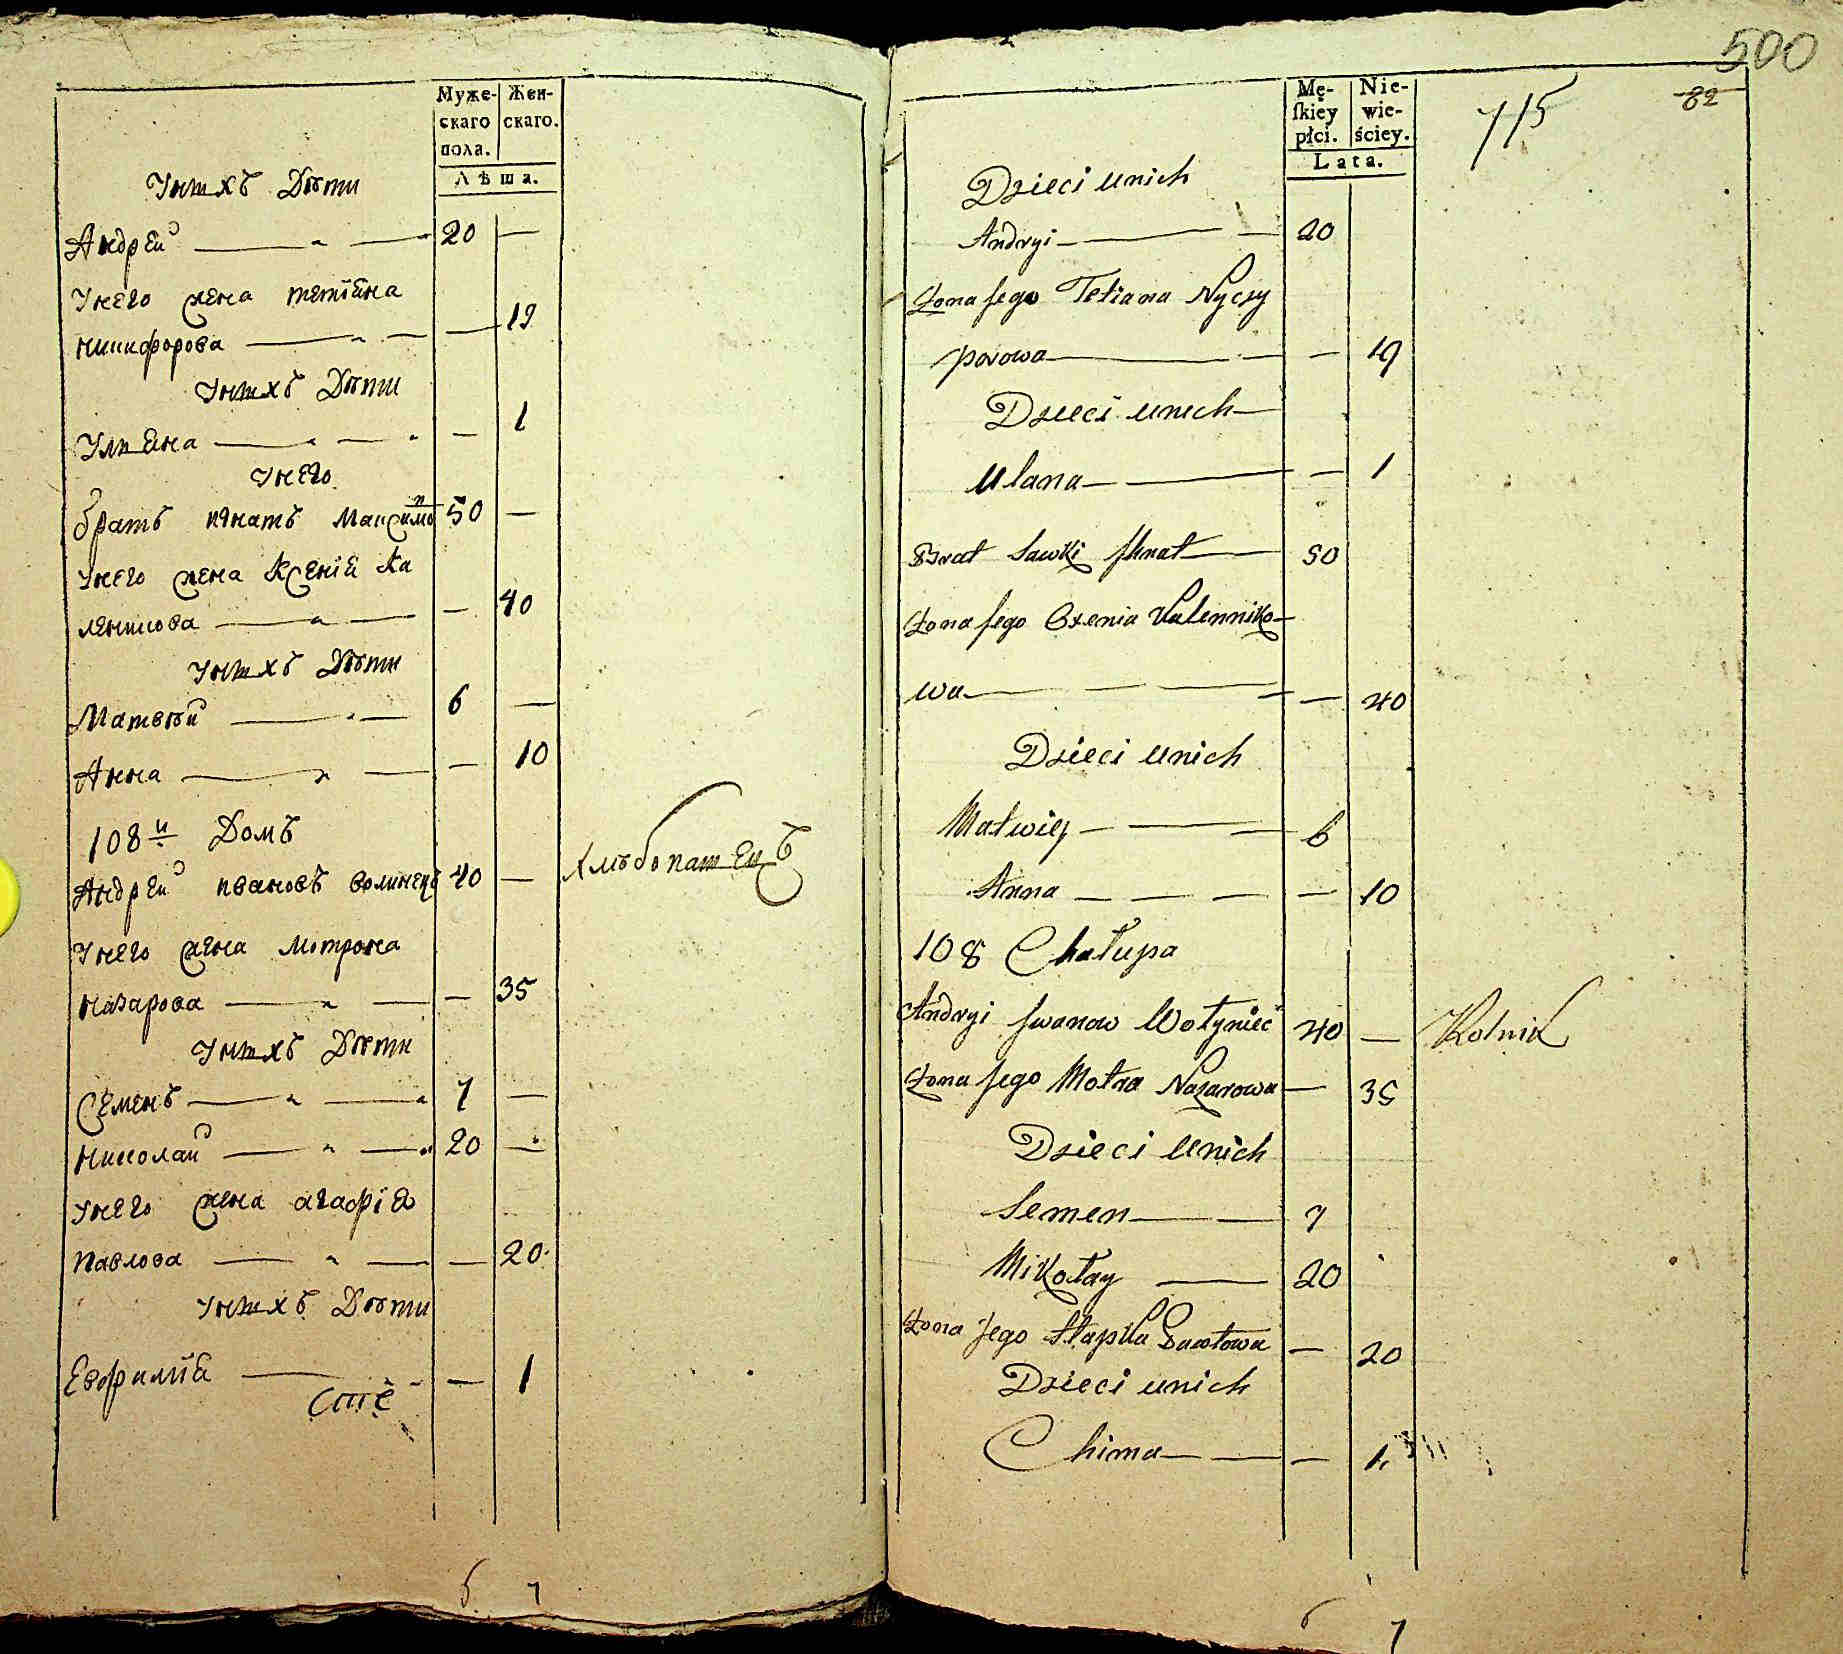 Муже-
скаго
пола.
Жен-
скаго.
Лѣта.
Унихъ Дѣти
Андрей — 20 —
Унего жена татіана
никифорова — — 19
Унихъ Дѣти
Улиана — — 1
Унего
братъ игнатъ Максимо 50 —
Унего жена Ксенія Ка
леникова — — 40
Унихъ Дѣти
Матвѣй — 6 —
Анна — — 10
108й Домъ
Андрей ивановъ волинецъ 40 — хлѣбопашецъ
Унего жена мотрона
назарова — — 35
Унихъ Дѣти
Семенъ — 7 —
николай — 20 —
Унего жена агафія
павлова — — 20
Унихъ Дѣти
Евфимія — — 1
6 7
500
82
715
Mę-
ſkiey
płci.
Nie-
wie-
ściey.
Lata.
Dzieci unich
Andryi — 20
Żona Jego Tetiana Nyczy
porowa — — 19
Dzieci unich
Ulana — — 1
Brat Sawki Jhnat — 50
Żona Jego Oxenia Kalenniko-
wa — — 40
Dzieci unich
Matwiey — 6
Anna — — 10
108 Chałupa
Andryi Jwanow Wołyniec 40 — Rolnik
Żona Jego Motra Nazarowa — 35
Dzieci unich
Semen — 7
Mikołay — 20
Żona Jego Hapka Pawłowa — 20
Dzieci unich
Chima — — 1
6 7